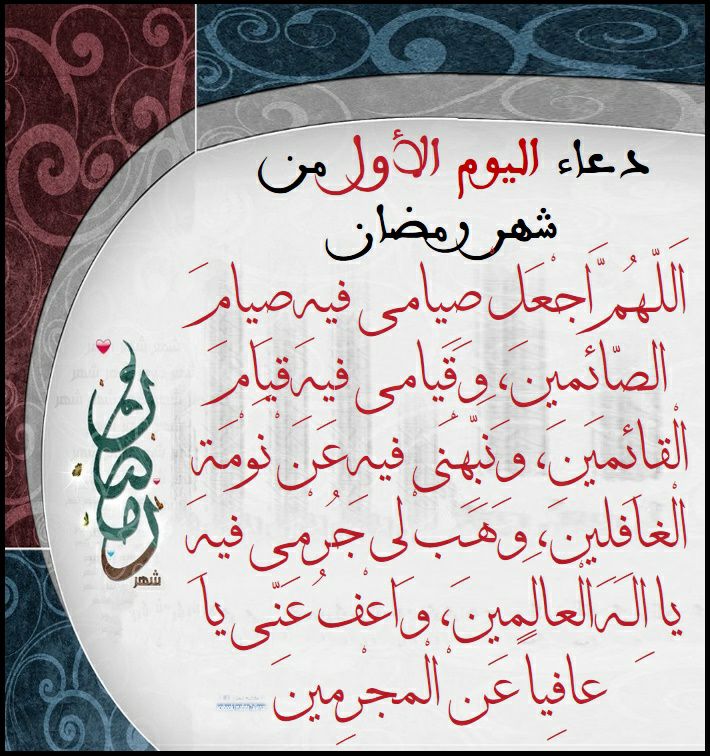 دعاء اليوم الأول من
شهر رمضان
اَللّهُمَّ اجْعَلْ صيامى فيه صيامَ
الصّائمينَ، وَقيامى فيهَ قيامَ
الْقائمينَ، وَنَبّهْنى فيه عَنْ نوْمَة
الْغافلينَ، وَهَبْ لى جُرْمى فيهَ
يا الَهَ الْعالمينَ، وَاعْفُ عَنّى يا
عافياً عَنْ الْمجْرمينَ
رمضان
شهر